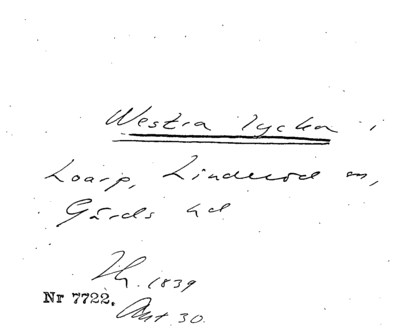 Westra lycka i
Loarp, Linderöd sn,
Gärds hd
Jh. 1839
Nr 7722.
Akt 30.